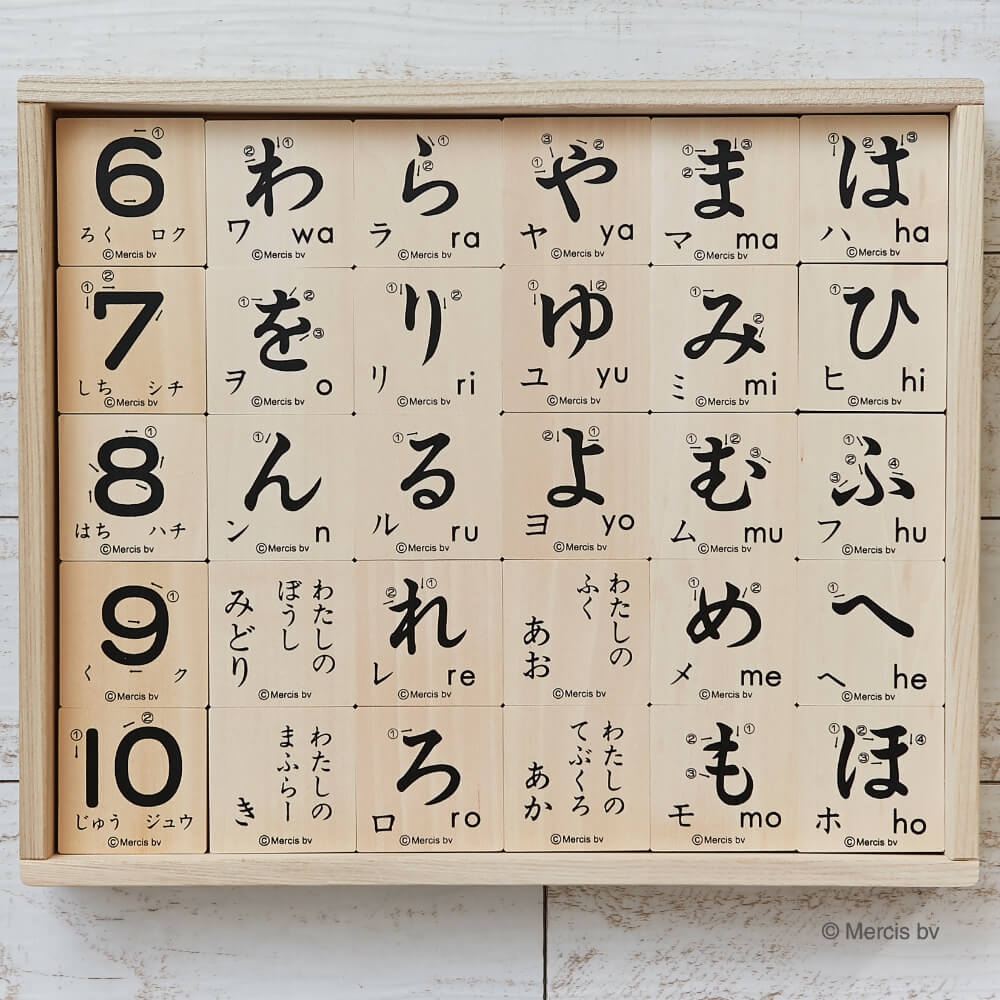 6
① 
ろく ロク
©Mercis bv
わ
② ①
ワ wa
©Mercis bv
ら
① ②
ラ ra
©Mercis bv
や
③ ② ①
ヤ ya
©Mercis bv
ま
① ③ ②
マ ma
©Mercis bv
は
① ② ③
ハ ha
©Mercis bv
7
② ①
しち シチ
©Mercis bv
を
① ② ③
ヲ o
©Mercis bv
り
① ②
リ ri
©Mercis bv
ゆ
① ②
ユ yu
©Mercis bv
み
① ②
ミ mi
©Mercis bv
ひ
①
ヒ hi
©Mercis bv
8
①
はち ハチ
©Mercis bv
ん
①
ン n
©Mercis bv
る
①
ル ru
©Mercis bv
よ
② ①
ヨ yo
©Mercis bv
む
① ② ③
ム mu
©Mercis bv
ふ
① ② ③ ④
フ hu
©Mercis bv
9
①
く ク
©Mercis bv
わたしの
ぼうし
みどり
©Mercis bv
れ
② ①
レ re
©Mercis bv
わたしの
ふく
あお
©Mercis bv
め
① ②
メ me
©Mercis bv
へ
①
ヘ he
©Mercis bv
10
① ②
じゅう ジュウ
©Mercis bv
わたしの
まふらー
き
©Mercis bv
ろ
①
ロ ro
©Mercis bv
わたしの
てぶくろ
あか
©Mercis bv
も
② ① ③
モ mo
©Mercis bv
ほ
① ② ④ ③
ホ ho
©Mercis bv
© Mercis bv